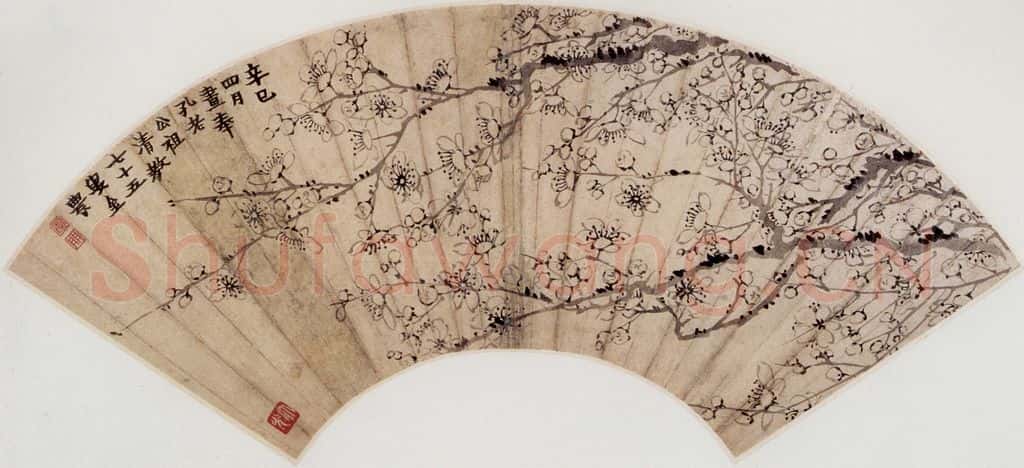 辛巳
四月
畫奉
孔老
公祖
清教
七十五
叟金
農
Shufawang.CN